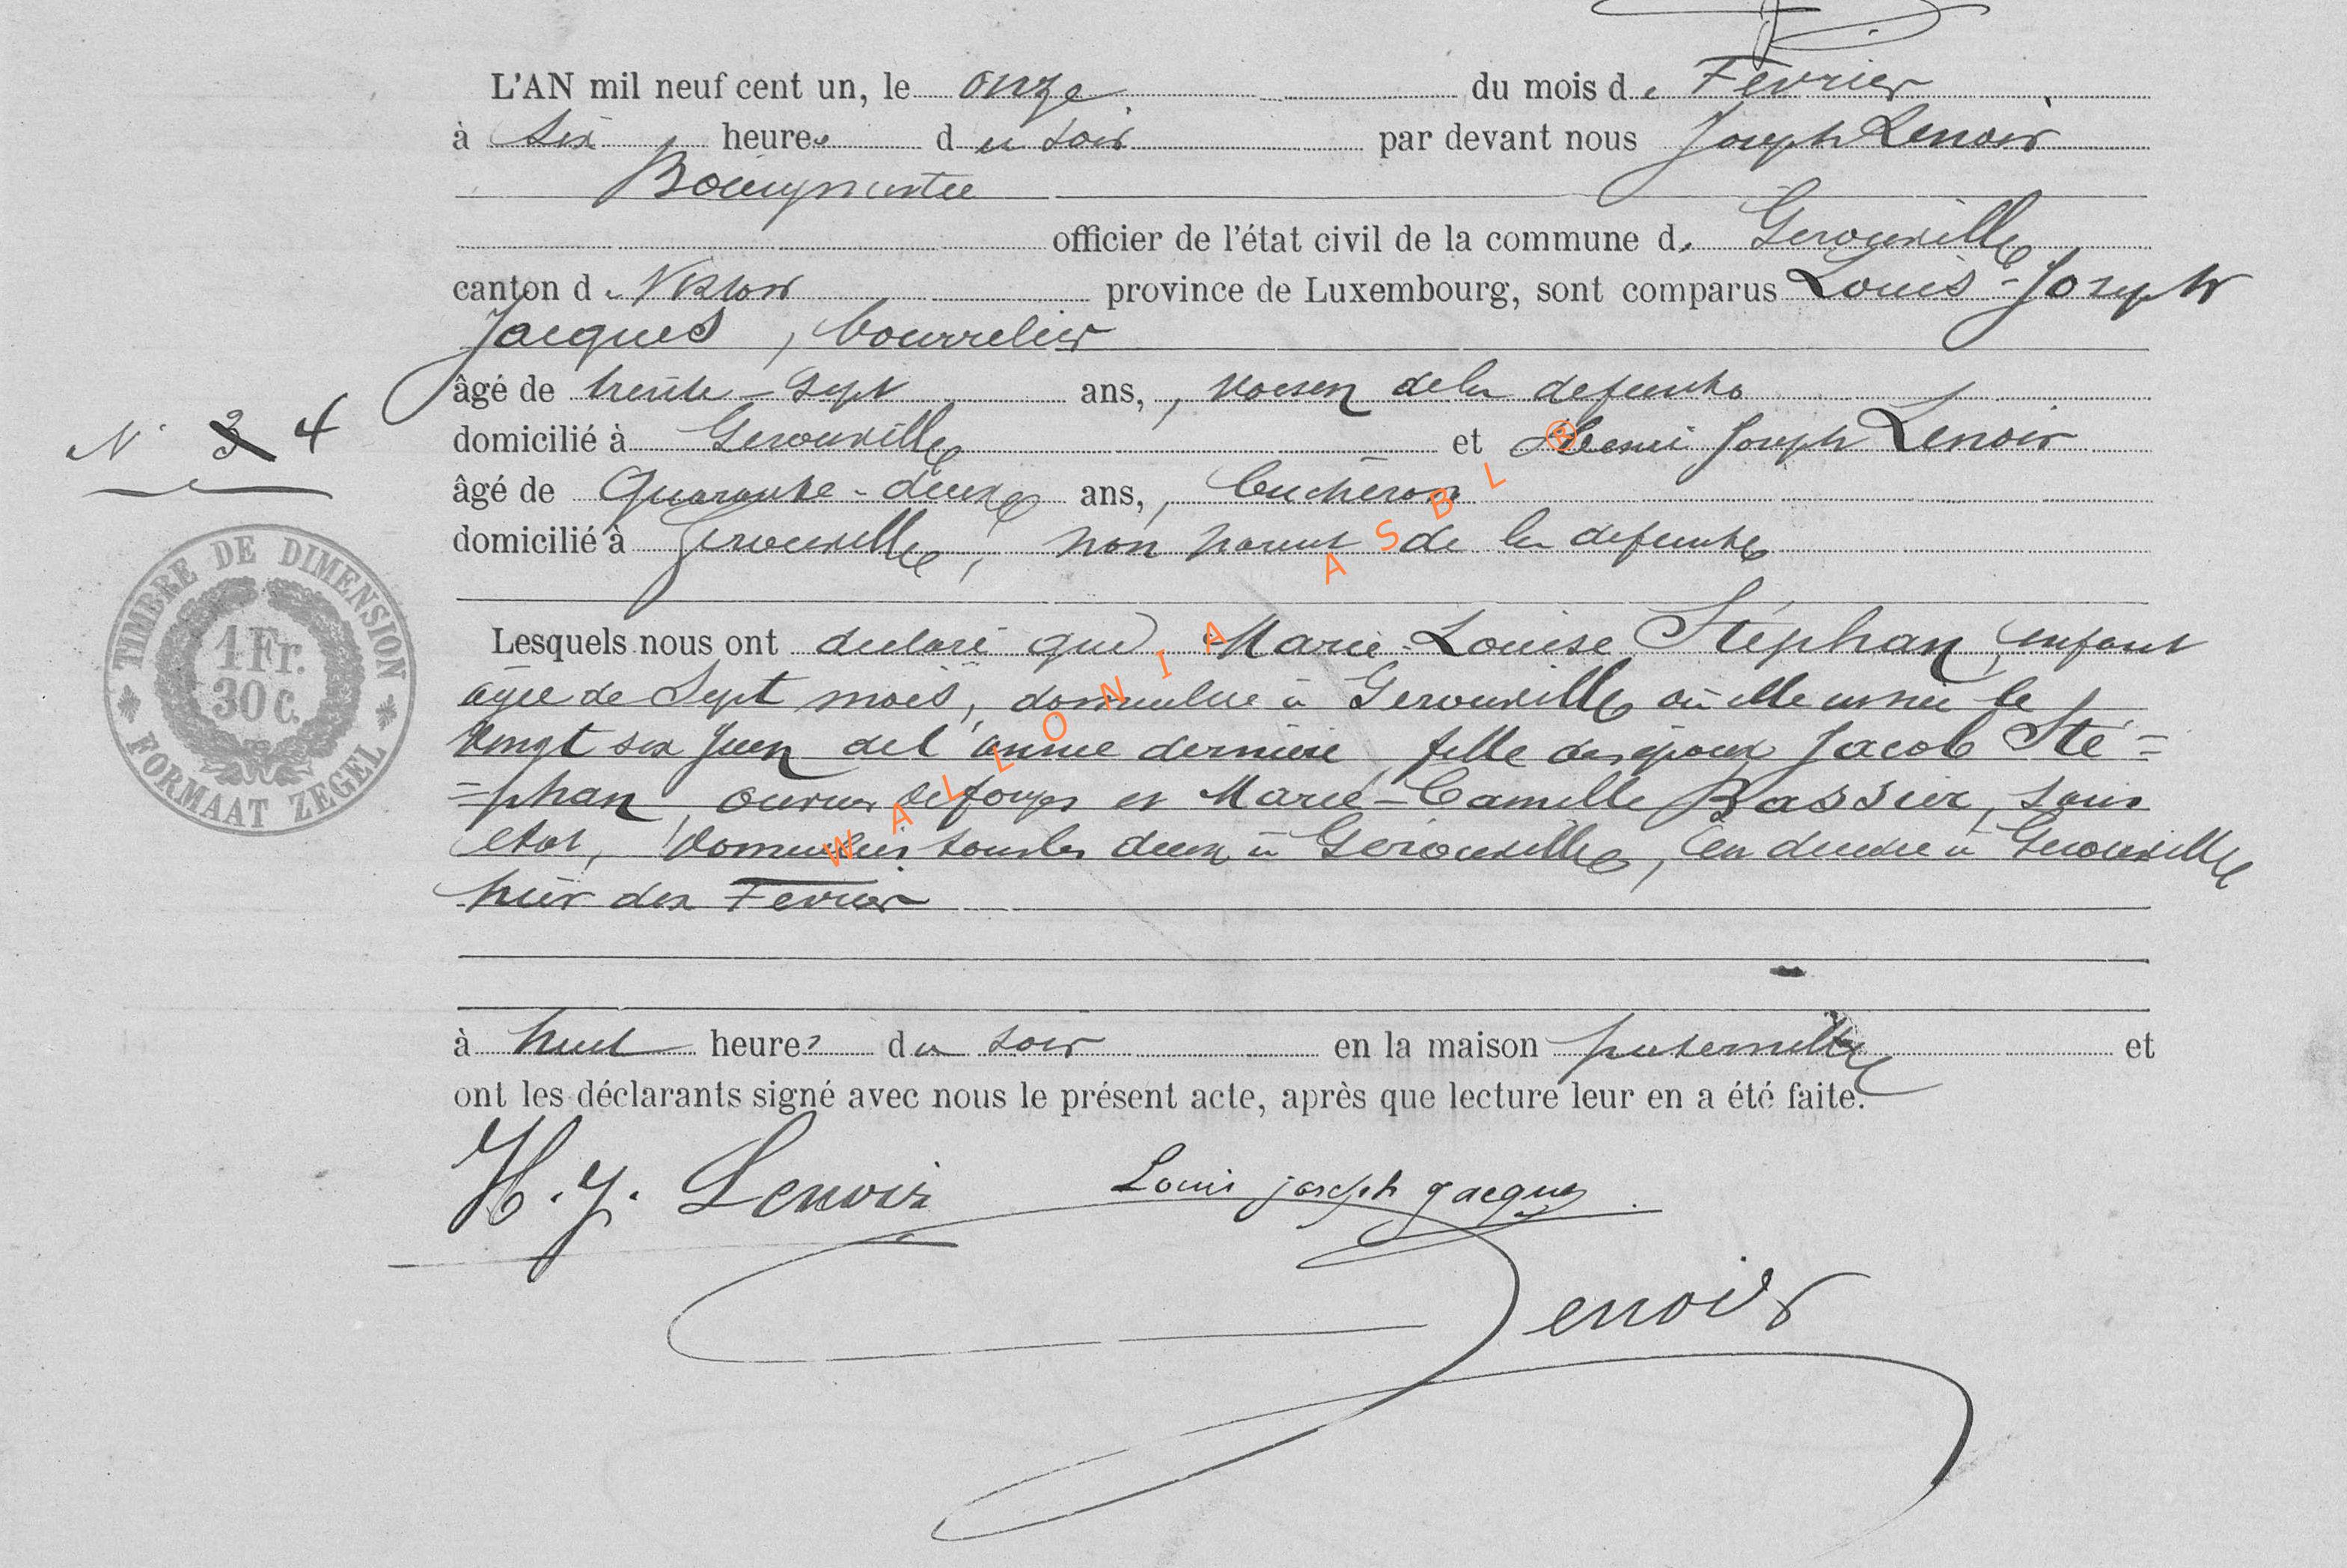 L'AN mil neuf cent un, le onze du mois de Fevrier
à six heures du soir par devant nous Joseph Lenoir
Bourgmestre
officier de l'état civil de la commune de Gerouville
canton de Virton province de Luxembourg, sont comparus Louis-Joseph
Jacques, bourrelier
âgé de trente-sept ans, voisin de la defunte
N° 3 4
domicilié à Gerouville et Henri Joseph Lenoir
âgé de Quarante-deux ans, bucheron
domicilié à Gerouville, non parent de la defunte
TIMBRE DE DIMENSION
1 Fr.
30 C.
FORMAAT ZEGEL
Lesquels nous ont declaré que Marie-Louise Stéphan, enfant
agée de Sept mois, domiciliée à Gerouville où elle est née le
Vingt six Juin de l'année derniere, fille des époux Jacob Sté=
=phan, ouvrier de forges et Marie-Camille Bassier, sans
etat, domiciliés tous les deux à Gerouville, est decedée à Gerouville
hier dix Fevrier
à huit heures du soir en la maison paternelle et
ont les déclarants signé avec nous le présent acte, après que lecture leur en a été faite.
H. J. Lenoir Louis joseph jacques
Lenoir
WALLONIA ASBL ®